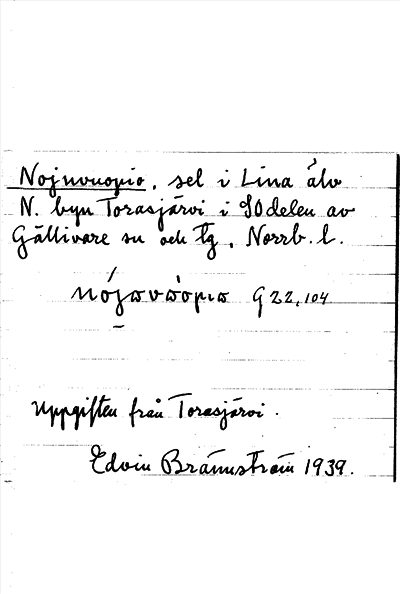 Nojnvuopio, sel i Lina älv
N. byn Torasjärvi i SOdelen av
Gällivare sn och tg, Norrb. l.
G 22, 104
Uppgiften från Torasjärvi.
Edvin Brännström 1939.